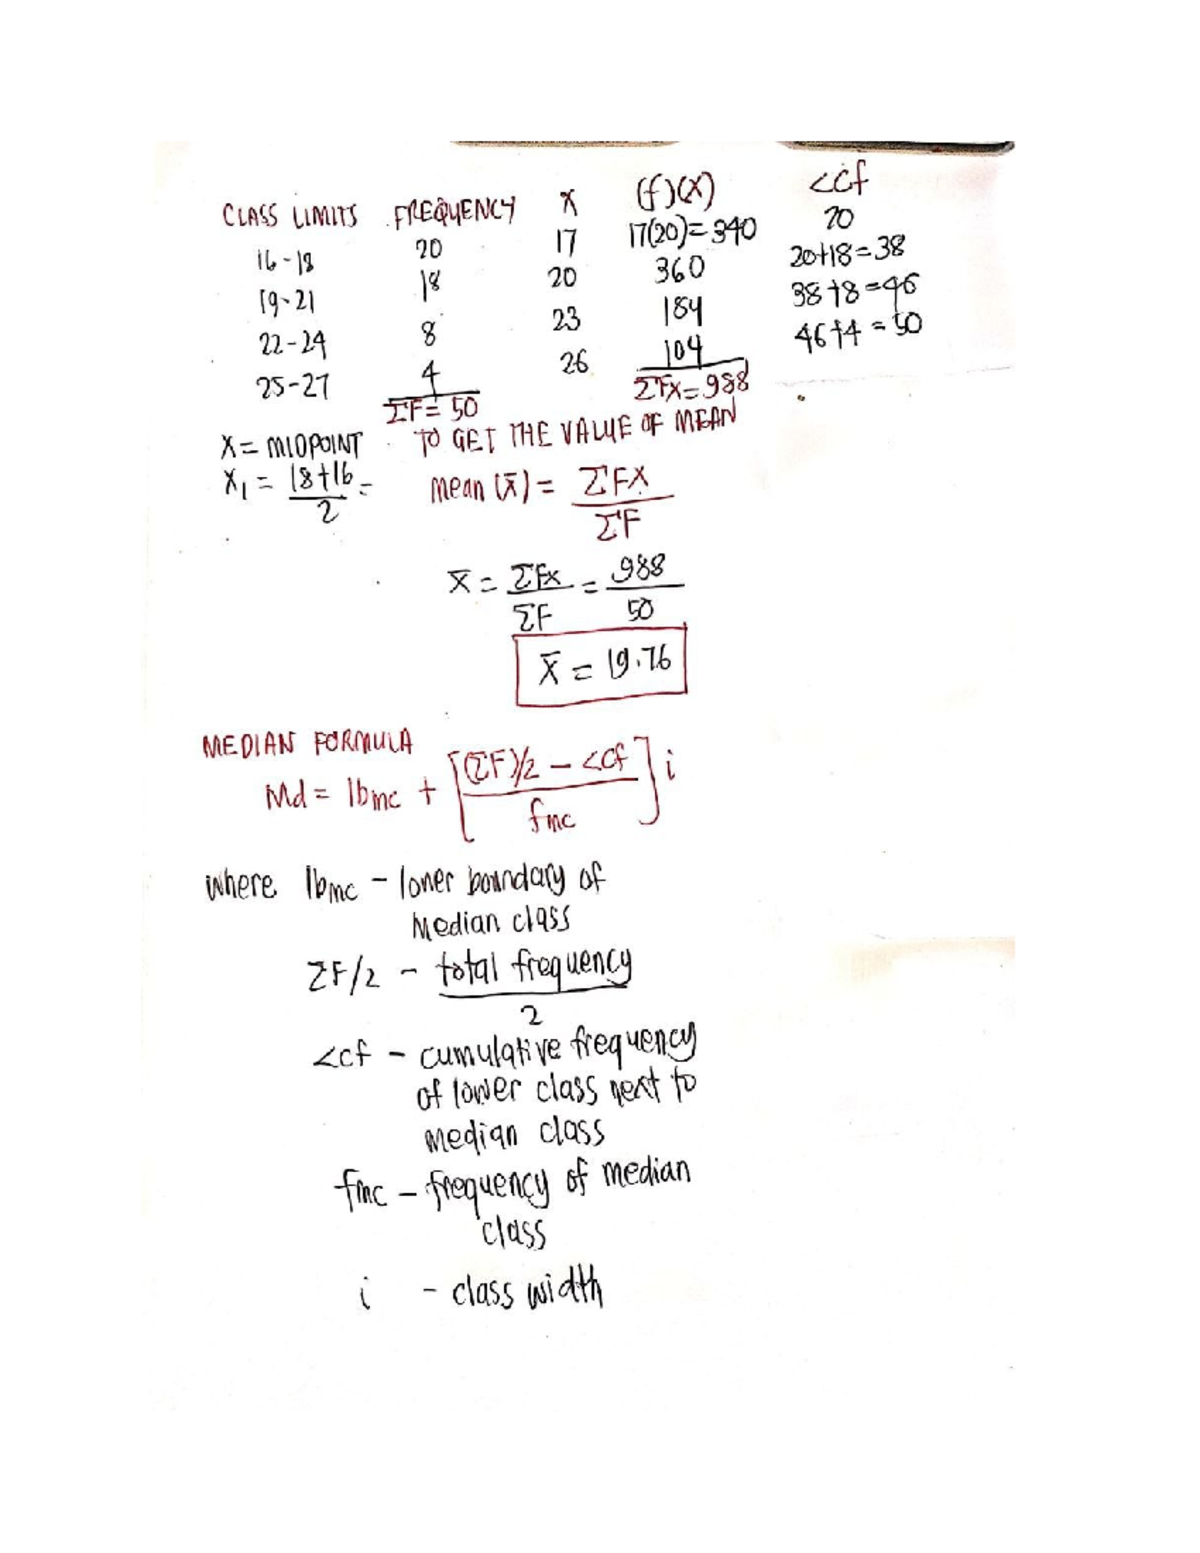 CLASS LIMITS FREQUENCY X (f)(X) <cf
16-18 20 17 17(20)=340 20
19-21 18 20 360 20+18=38
22-24 8 23 184 38+8=46
25-27 4 26 104 46+4=50
ΣF=50 ΣFX=988
X= MIDPOINT TO GET THE VALUE OF MEAN
X₁ = 18+16/2 = mean (x̄) = ΣFX/ΣF
x̄ = ΣFx/ΣF = 988/50
x̄ = 19.76
MEDIAN FORMULA
Md = lbmc + [(ΣF)/2 - <cf / fmc] i
where lbmc - loner boundary of
Median class
ΣF/2 - total frequency
2
<cf - cumulative frequency
of lower class next to
median class
fmc - frequency of median
class
i - class width